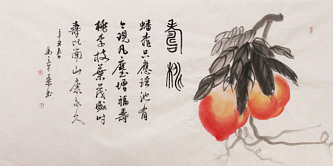 寿桃
蟠桃只应瑶池有
今现凡尘增福寿
桃李枝叶茂盛时
寿比南山康永久